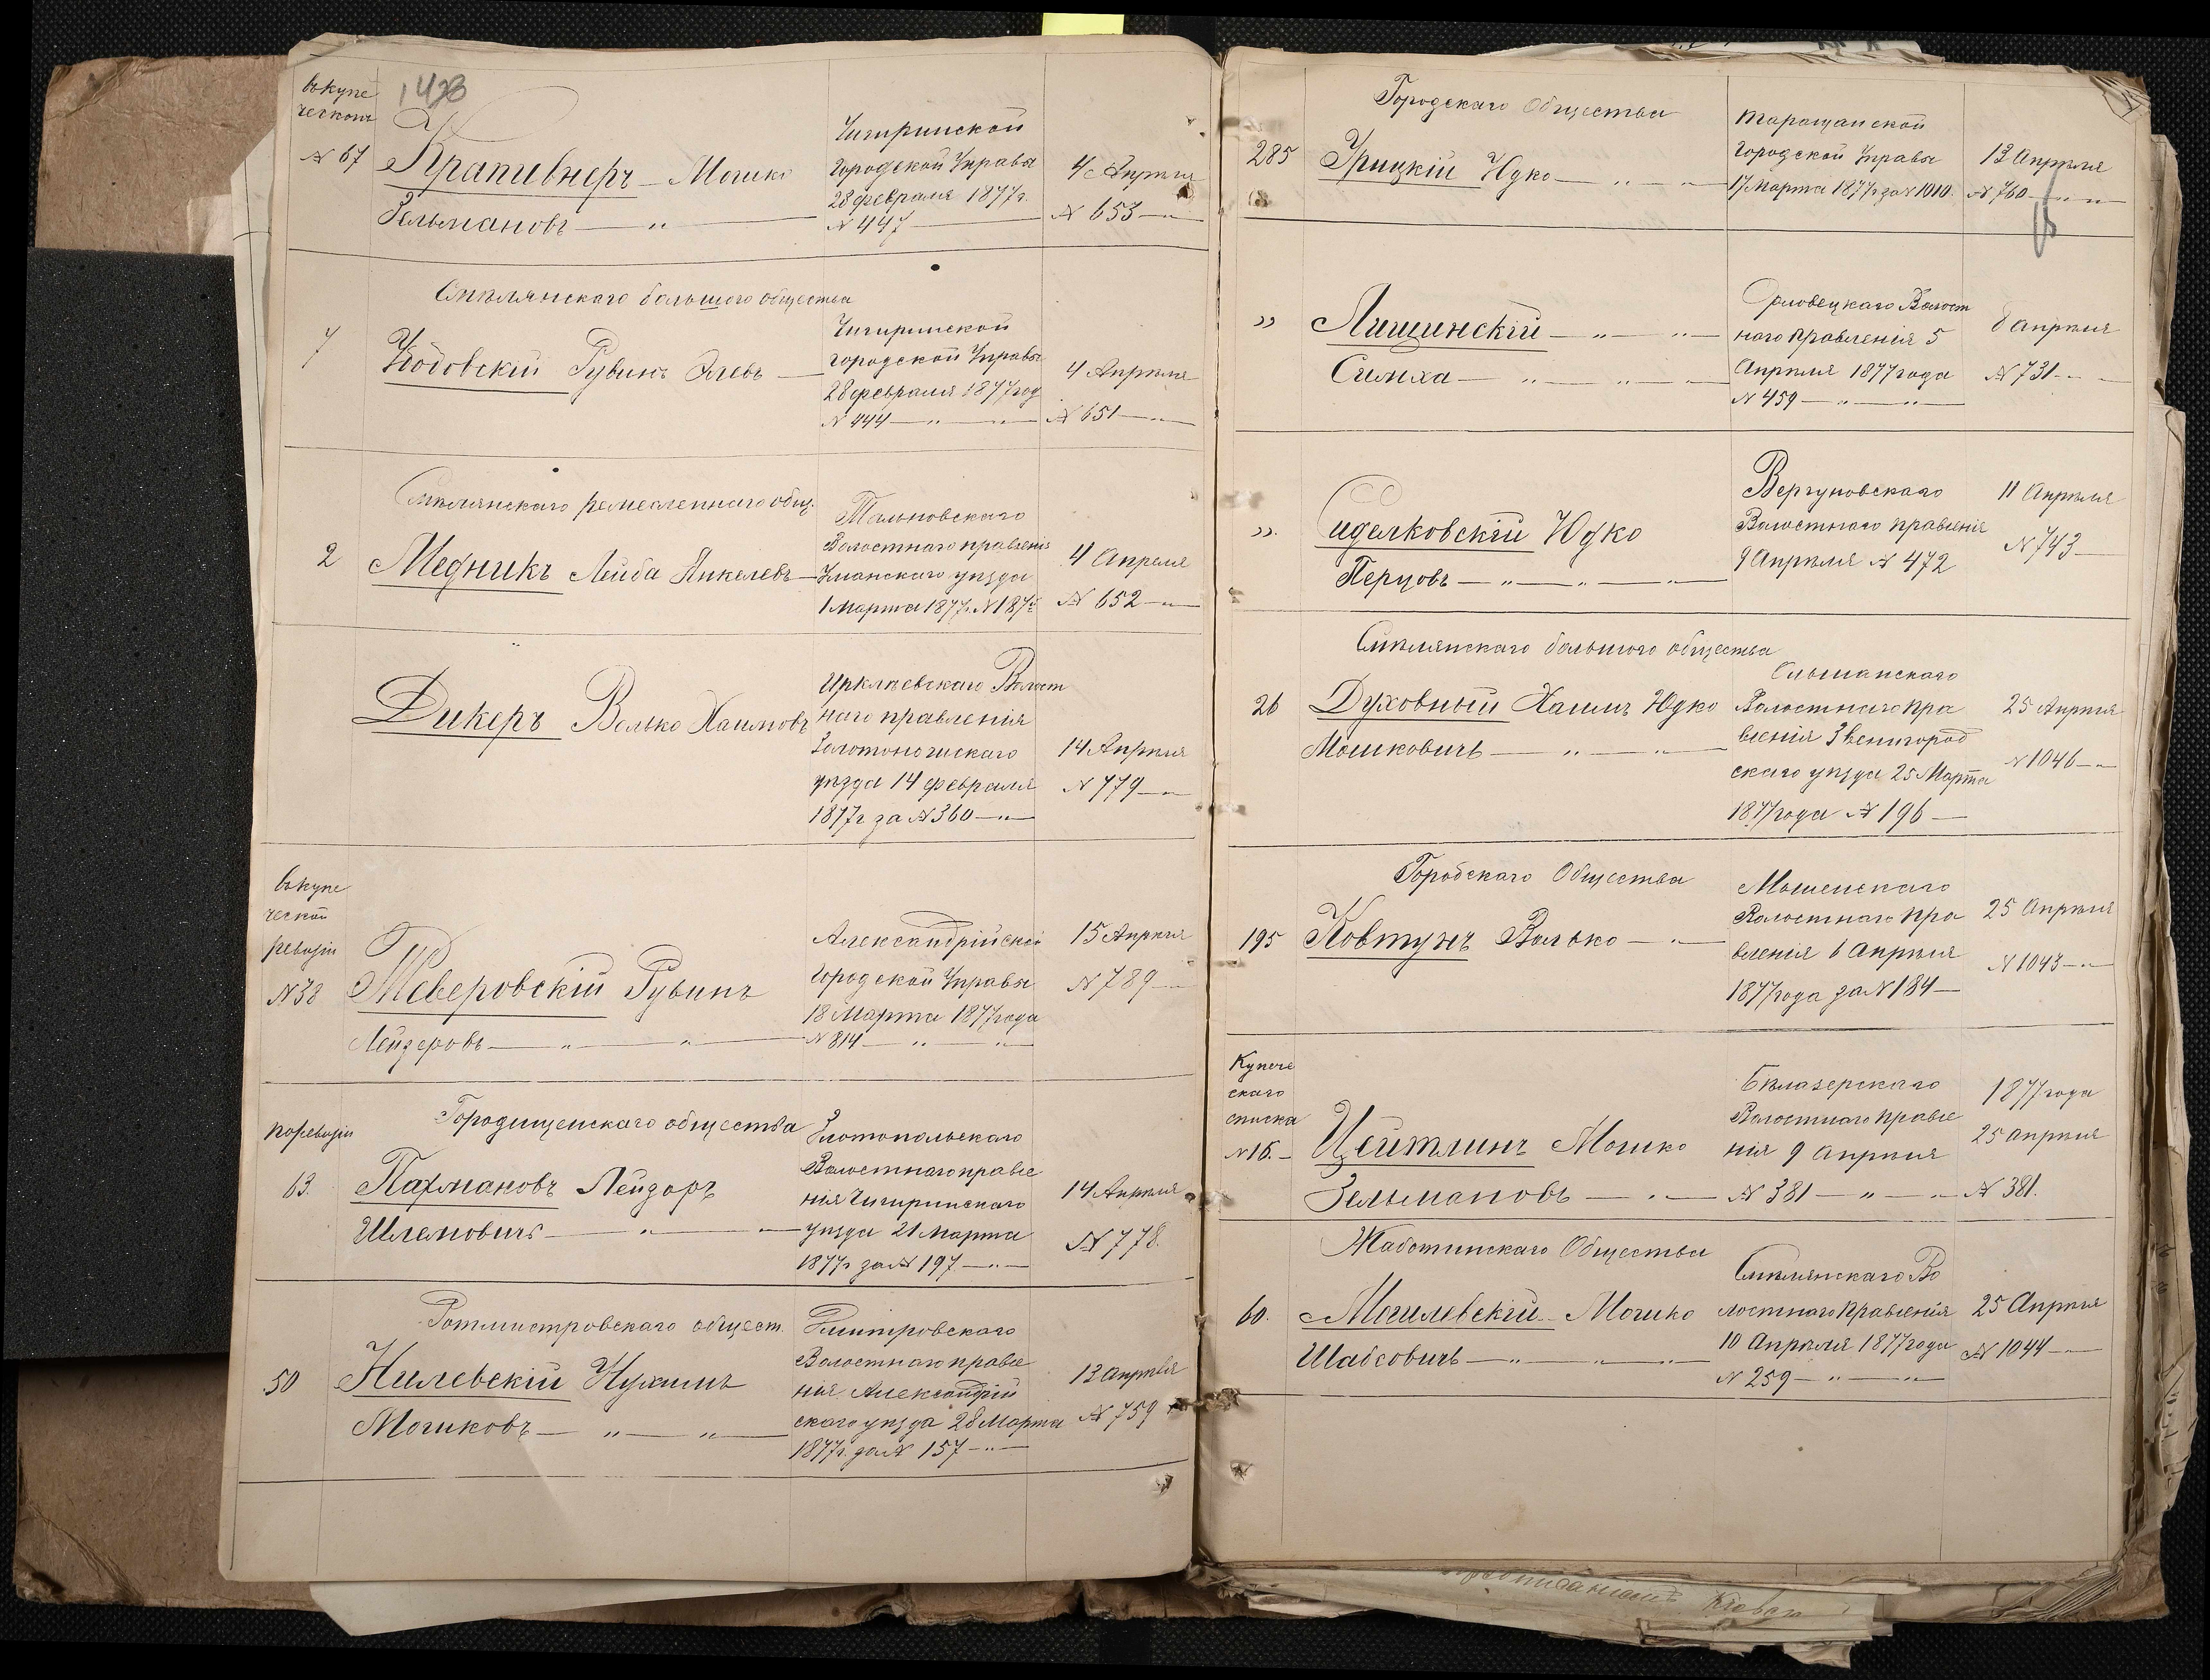 вкупе
ческой
1428
№ 67
Крапивнеръ Мошко
Зельмановъ — „
Чигиринской
Городской Управы
28 февраля 1877 г.
№ 447
4 Апрѣля
№ 653
Смѣлянскаго большого общества
7
Рувинъ
Чигиринской
городской Управы
28 февраля 1877 год
№ 444 — „ — „
4 Апрѣля
№ 651
Смѣлянскаго ремесленнаго общ.
2
Медникъ Лейба Янкелевъ
Тальновскаго
Волостнаго правленія
Уманскаго уѣзда
1 Марта 1877 г. №
4 Апреля
№ 652
Дикеръ Волько Хаимовъ
Ирклѣевскаго Волост
наго правленія
Золотоношскаго
уѣзда 14 февраля
1877 г за № 360 — „ —
14 Апрѣля
№ 779
вкупе
ческой
ревизіи
№ 38
Меверовскій Рувинъ
Лейзеровъ — „ — „
Александрійской
Городской Управы
18 Марта 1877 года
№ 814 — „ — „
15 Апрѣля
№ 789
Городищенскаго общества
поревизіи
63.
Пахмановъ Лейзоръ
Шлемовичъ — „ — „
Златопольскаго
Волостнаго правле
нія Чигиринскаго
уѣзда 21 марта
1877 г за № 197 — „ —
14 Апрѣля
№ 778.
Ротмистровскаго общест.
50
Нилевскій Нухимъ
Мошковъ — „ — „
Дмитровскаго
Волостнаго правле
нія Александрій
скаго уѣзда 28 Марта
1877 г. за № 157 — „ —
13 апрѣля
№ 759
Городскаго Общества
285
Урицкій Юдко — „ — „
Таращанской
Городской Управы
17 Марта 1877 г за № 1010.
13 Апрѣля
№ 760 — „ — „
„
Лищинскій — „ — „
Симха — „ — „ — „
Орловецкаго Волост
наго Правленія 5
Апрѣля 1877 года
№ 459 — „ — „
8 Апрѣля
№ 731 — „
„
Сиделковскій Юдко
Перцовъ — „ — „ — „
Вергуновскаго
Волостнаго правленія
9 Апрѣля № 472
11 Апрѣля
№ 743
Смѣлянскаго большого общества
26
Духовный Хаимъ Юдко
Мошковичъ — „ — „
Ольшанскаго
Волостнаго Пра
вленія Звенигород
скаго уѣзда 25 Марта
1877 года № 196 —
25 Апрѣля
№ 1046 — „
Городскаго Общества
195
Ковтунъ Волько — „
Мошенскаго
Волостнаго Пра
вленія 6 Апрѣля
1877 года за № 184 —
25 Апрѣля
№ 1043 — „
Купече
скаго
списка
№ 16.
Цейтлинъ Мошко
Зельмановъ — „
Бѣлазерскаго
Волостнаго Правле
нія 9 Апрѣля
№ 381 — „ — „
1877 года
25 апрѣля
№ 381.
Жаботинскаго Общества
60.
Могилевскій Мошко
Шабсовичъ — „ — „ — „
Смѣлянскаго Во
лостнаго Правленія
10 Апрѣля 1877 года
№ 259 — „ — „
25 Апрѣля
№ 1044 —